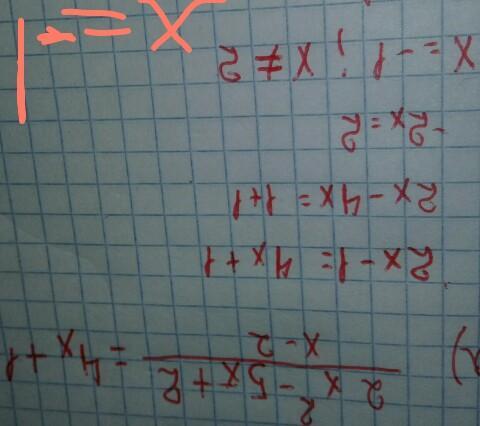 2x² - 5x + 2
x - 2
= 4x + 1
2x - 1 = 4x + 1
2x - 4x = 1+1
-2x = 2
x = -1 ; x ≠ 2
x = -1